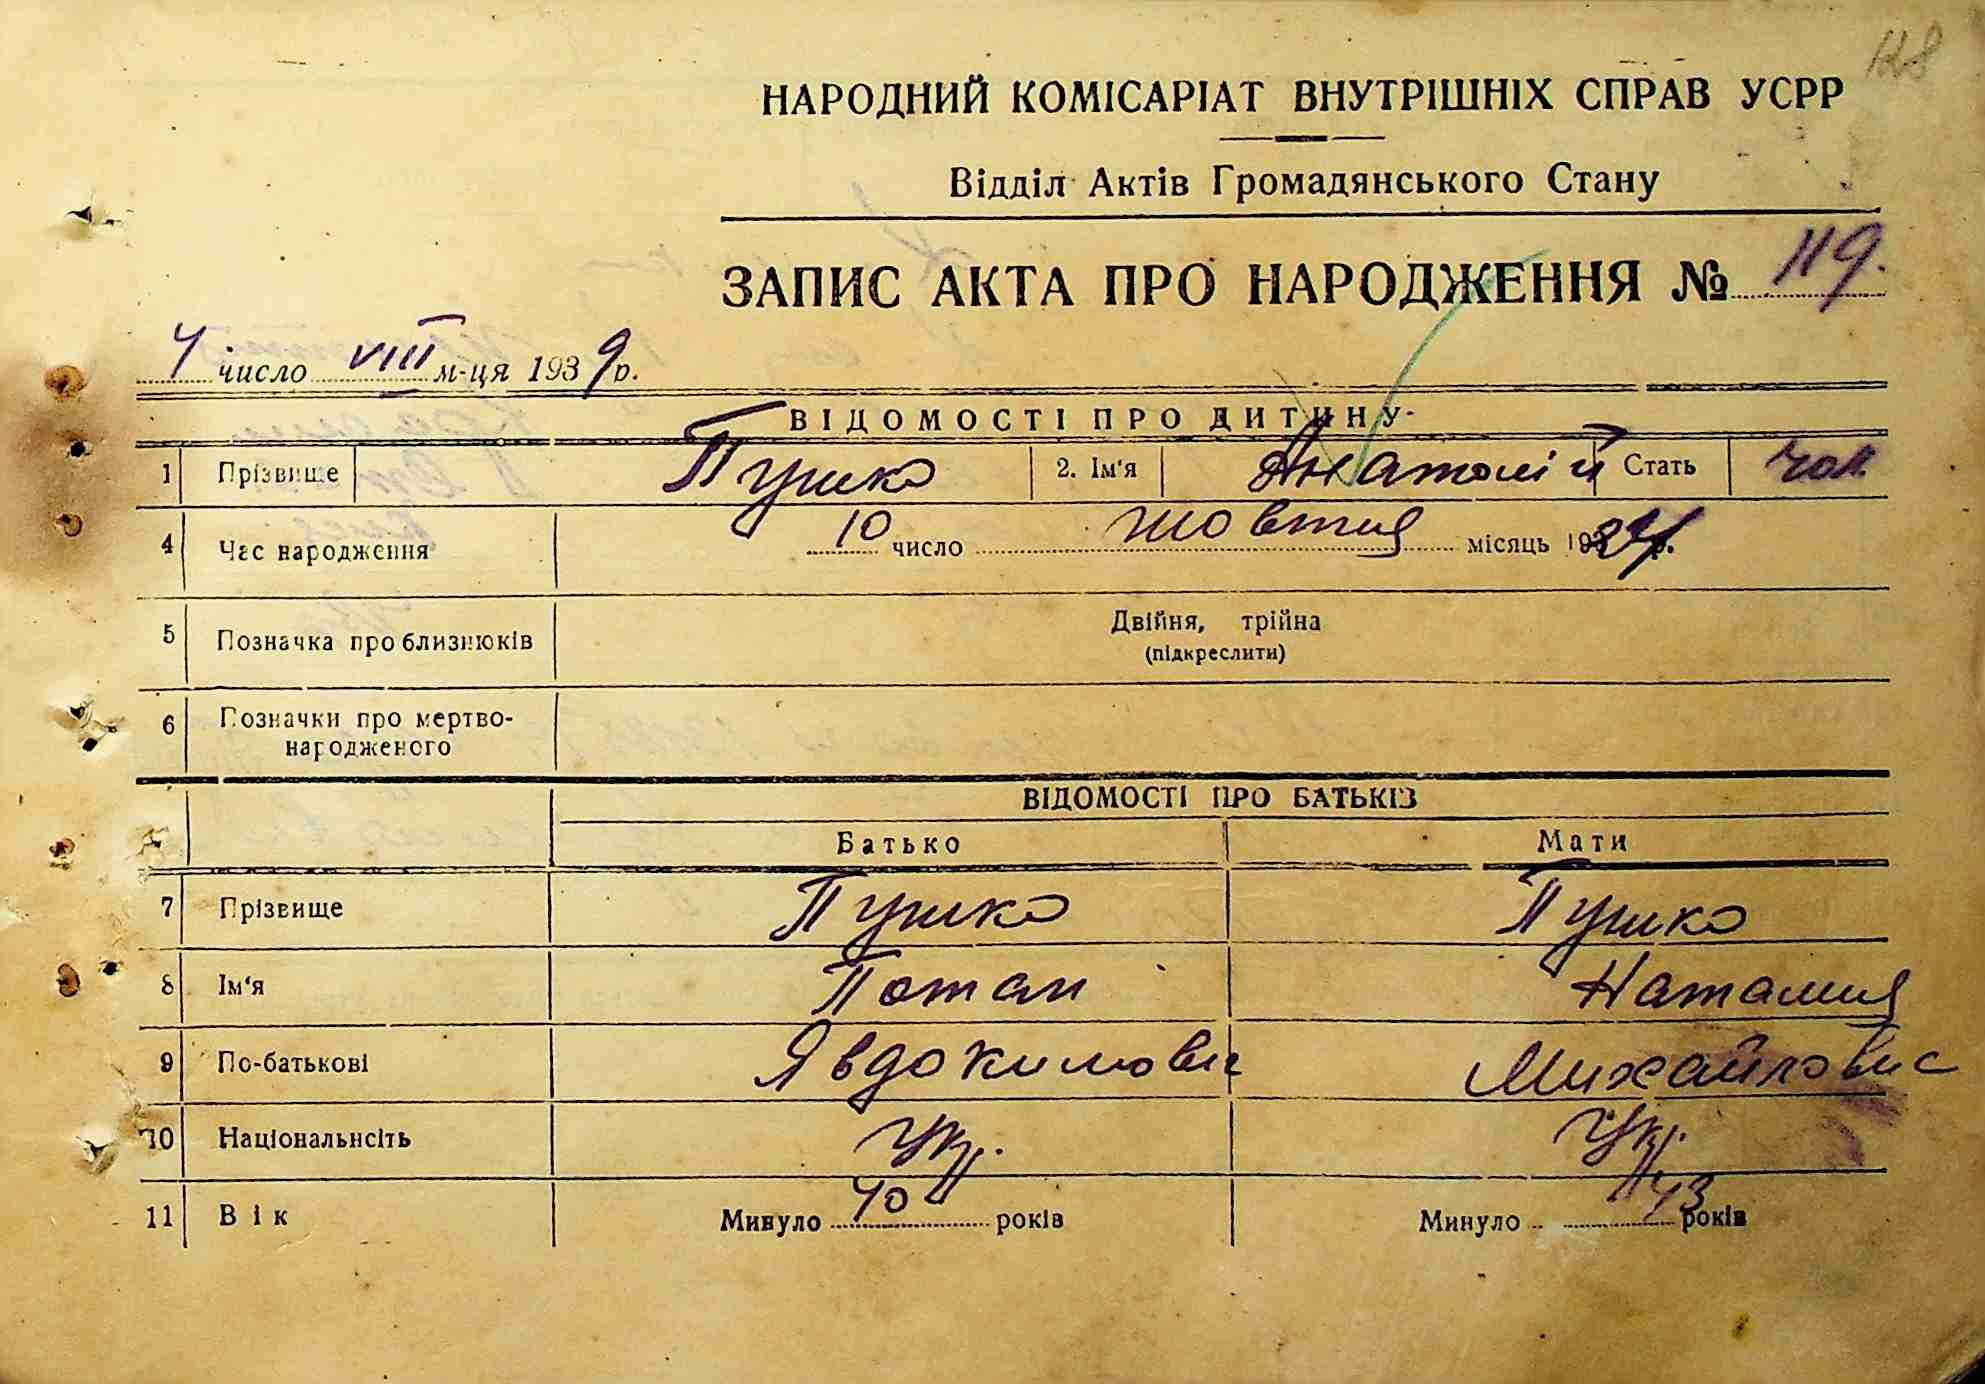 128
НАРОДНИЙ КОМІСАРІАТ ВНУТРІШНІХ СПРАВ УСРР
Відділ Актів Громадянського Стану
ЗАПИС АКТА ПРО НАРОДЖЕННЯ № 119.
4 число VIII м-ця 1939 р.
ВІДОМОСТІ ПРО ДИТИНУ
1 Прізвище Пушко 2. Ім'я Анатолій Стать чол.
4 Час народження 10 число жовтня місяць
5 Позначка про близнюків Двійня, трійна
(підкреслити)
6 Позначки про мертво-
народженого
ВІДОМОСТІ ПРО БАТЬКІВ
Батько Мати
7 Прізвище Пушко Пушко
8 Ім'я Потап Наталия
9 По-батькові Явдокимович Михайловис
10 Національність Укр. Укр.
11 Вік Минуло 40 років Минуло 43 років